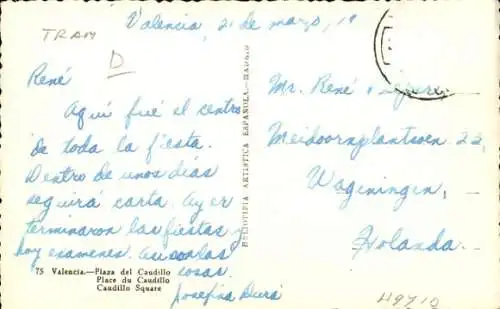 TRAM
Valencia, 21 de marzo, 19
D
René
Aquí fué el centro
de toda la fiesta.
Dentro de unos días
seguirá carta. Ayer
terminaron las fiestas y
hoy exámenes.
cosas.
Josefina Durá
75 Valencia.—Plaza del Caudillo
Place du Caudillo
Caudillo Square
HELIOTIPIA ARTISTICA ESPAÑOLA.—MADRID
Mr. René
Meidoornplantsoen 22,
Wageningen,
Holanda.
H9710